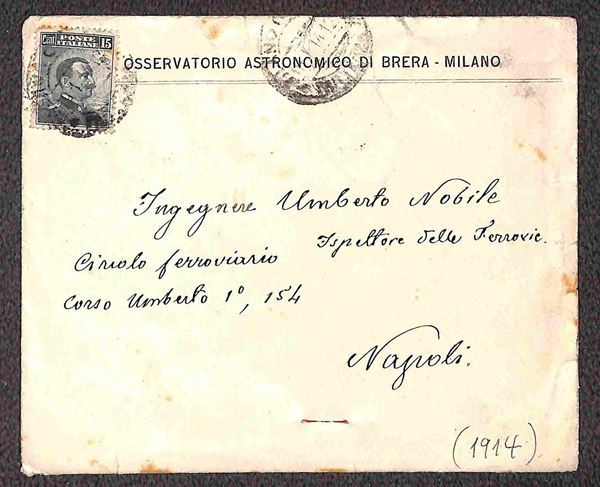 Cent. POSTE ITALIANE 15
OSSERVATORIO ASTRONOMICO DI BRERA - MILANO
Ingegnere Umberto Nobile
Ispettore delle Ferrovie.
Circolo ferroviario
Corso Umberto 1º, 154
Napoli.
(1914)